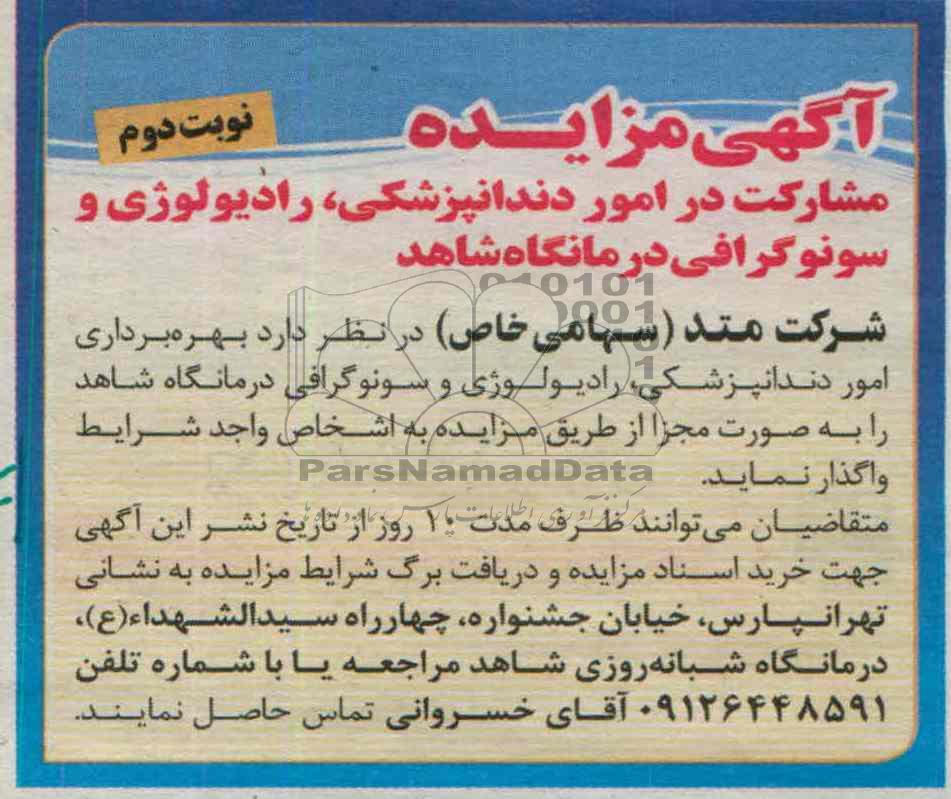 آگهی مزایده
نوبت دوم
مشارکت در امور دندانپزشکی، رادیولوژی و
سونوگرافی درمانگاه شاهد
شرکت متد (سهامی خاص) در نظر دارد بهره‌برداری
امور دندانپزشکی، رادیولوژی و سونوگرافی درمانگاه شاهد
را به صورت مجزا از طریق مزایده به اشخاص واجد شرایط
واگذار نماید.
متقاضیان می‌توانند ظرف مدت ۱۰ روز از تاریخ نشر این آگهی
جهت خرید اسناد مزایده و دریافت برگ شرایط مزایده به نشانی
تهرانپارس، خیابان جشنواره، چهارراه سیدالشهداء(ع)،
درمانگاه شبانه‌روزی شاهد مراجعه یا با شماره تلفن
۰۹۱۲۶۴۴۸۵۹۱ آقای خسروانی تماس حاصل نمایند.
ParsNamadData